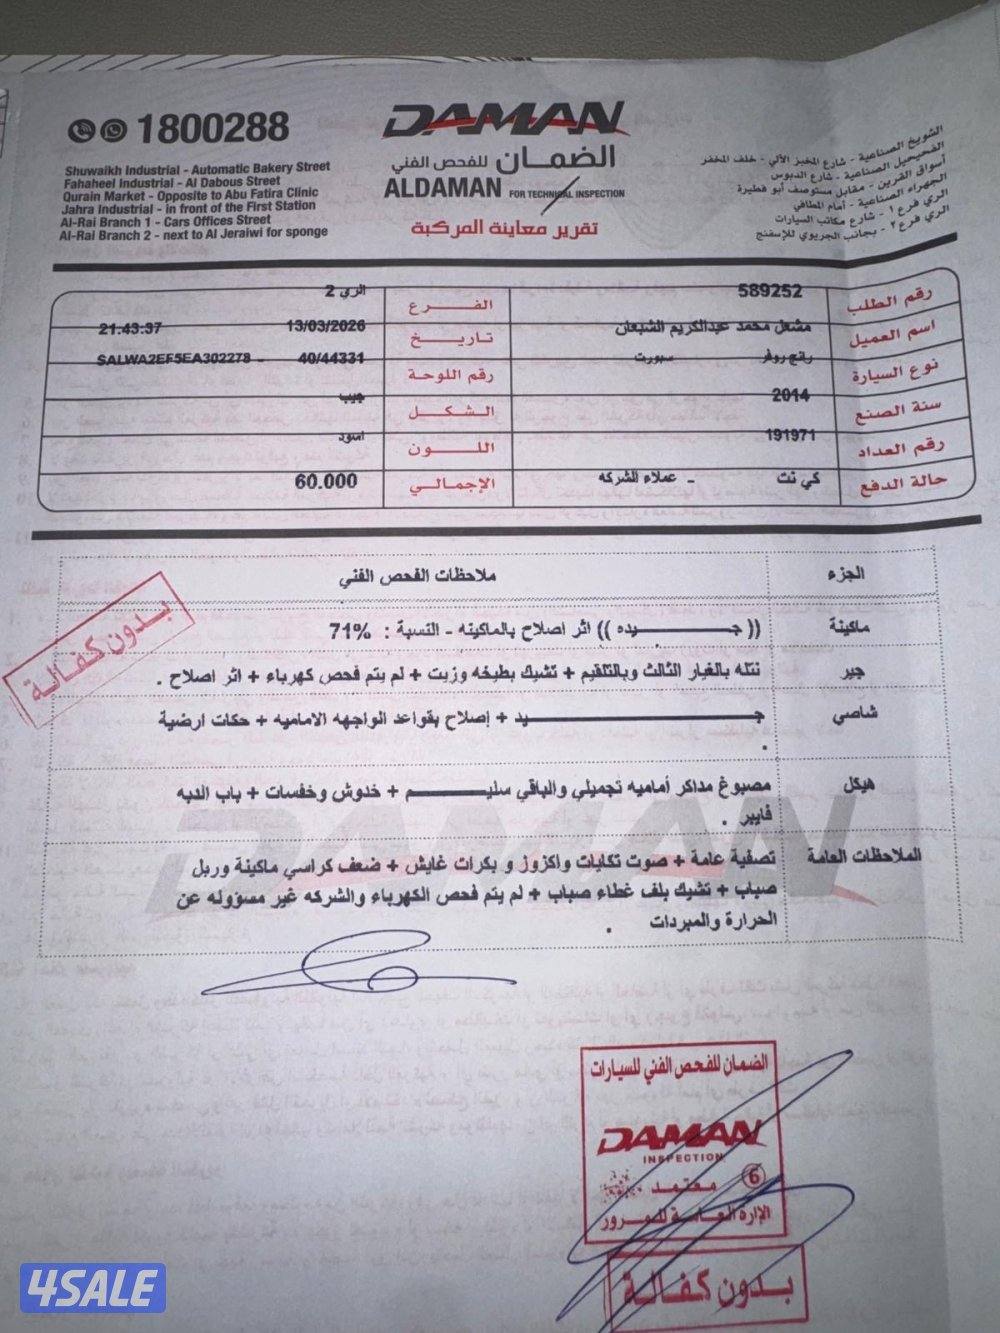 1800288
DAMAN
الضمان للفحص الفني
ALDAMAN FOR TECHNICAL INSPECTION
تقرير معاينة المركبة
Shuwaikh Industrial - Automatic Bakery Street
Fahaheel Industrial - Al Dabous Street
Qurain Market - Opposite to Abu Fatira Clinic
Jahra Industrial - in front of the First Station
Al-Rai Branch 1 - Cars Offices Street
Al-Rai Branch 2 - next to Al Jeraiwi for sponge
الشويخ الصناعية - شارع المخبز الآلي - خلف المخفر
الفحيحيل الصناعية - شارع الدبوس
أسواق القرين - مقابل مستوصف أبو فطيرة
الجهراء الصناعية - أمام المطافي
الري فرع ١ - شارع مكاتب السيارات
الري فرع ٢ - بجانب الجريوي للإسفنج
رقم الطلب 589252 الفرع الري 2
اسم العميل مشعل محمد عبدالكريم الشبعان تاريخ 13/03/2026 21:43:37
نوع السيارة رانج روفر سبورت رقم اللوحة 40/44331 - SALWA2EF5EA302278
سنة الصنع 2014 الشكل جيب
رقم العداد 191971 اللون اسود
حالة الدفع كي نت - عملاء الشركه الإجمالي 60.000
الجزء ملاحظات الفحص الفني
بدون كفالة
ماكينة (( جيده )) اثر اصلاح بالماكينه - النسبة : 71%
جير نتله بالغيار الثالث وبالتلقيم + تشيك بطيخه وزيت + لم يتم فحص كهرباء + اثر اصلاح .
شاصي جيد + إصلاح بقواعد الواجهه الاماميه + حكات ارضية
.
هيكل مصبوغ مداكر أماميه تجميلي والباقي سليم + خدوش وخفسات + باب الدبه
فايبر .
الملاحظات العامة تصفية عامة + صوت تكايات واكزوز و بكرات غايش + ضعف كراسي ماكينة وربل
صباب + تشيك بلف غطاء صباب + لم يتم فحص الكهرباء والشركه غير مسؤوله عن
الحرارة والمبردات .
DAMAN
الضمان للفحص الفني للسيارات
DAMAN
INSPECTION
معتمد 6
الإدارة العامة للمرور
بدون كفالة
4SALE